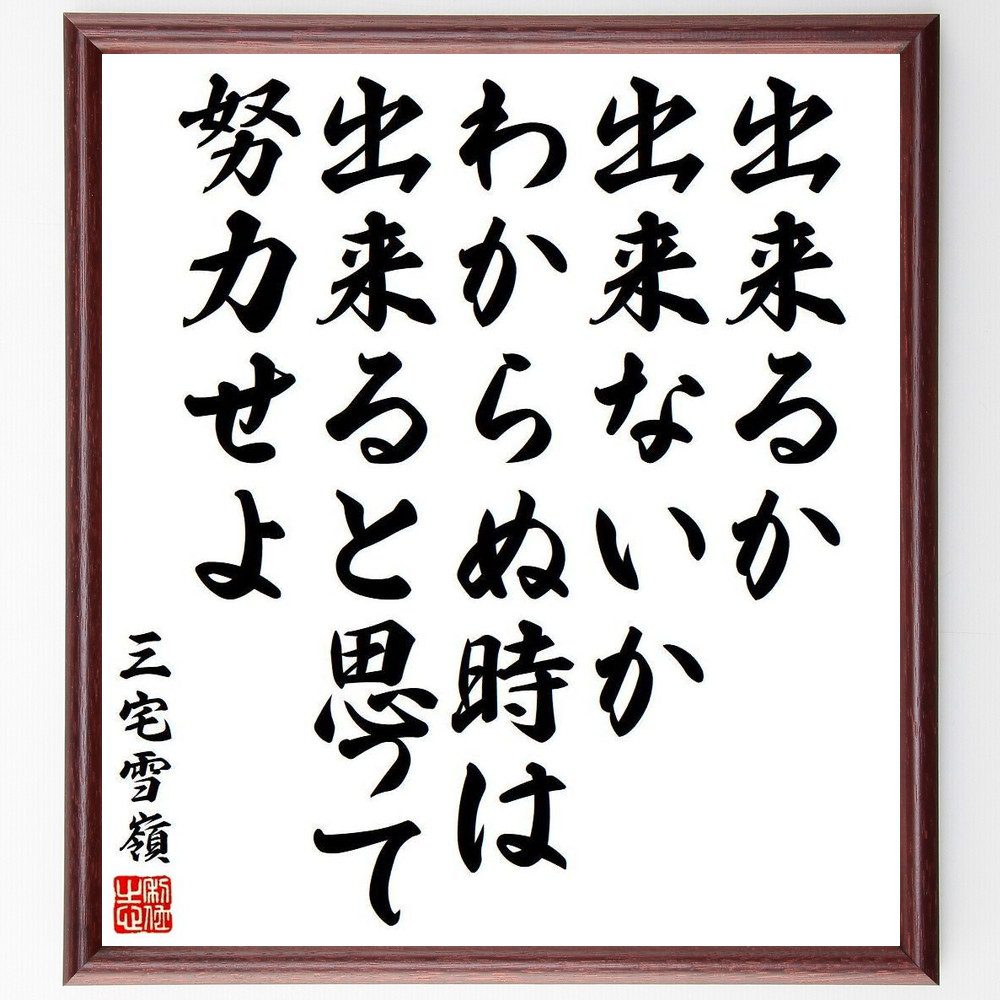 出来るか
出来ないか
わからぬ時は
出来ると思って
努力せよ
三宅雪嶺